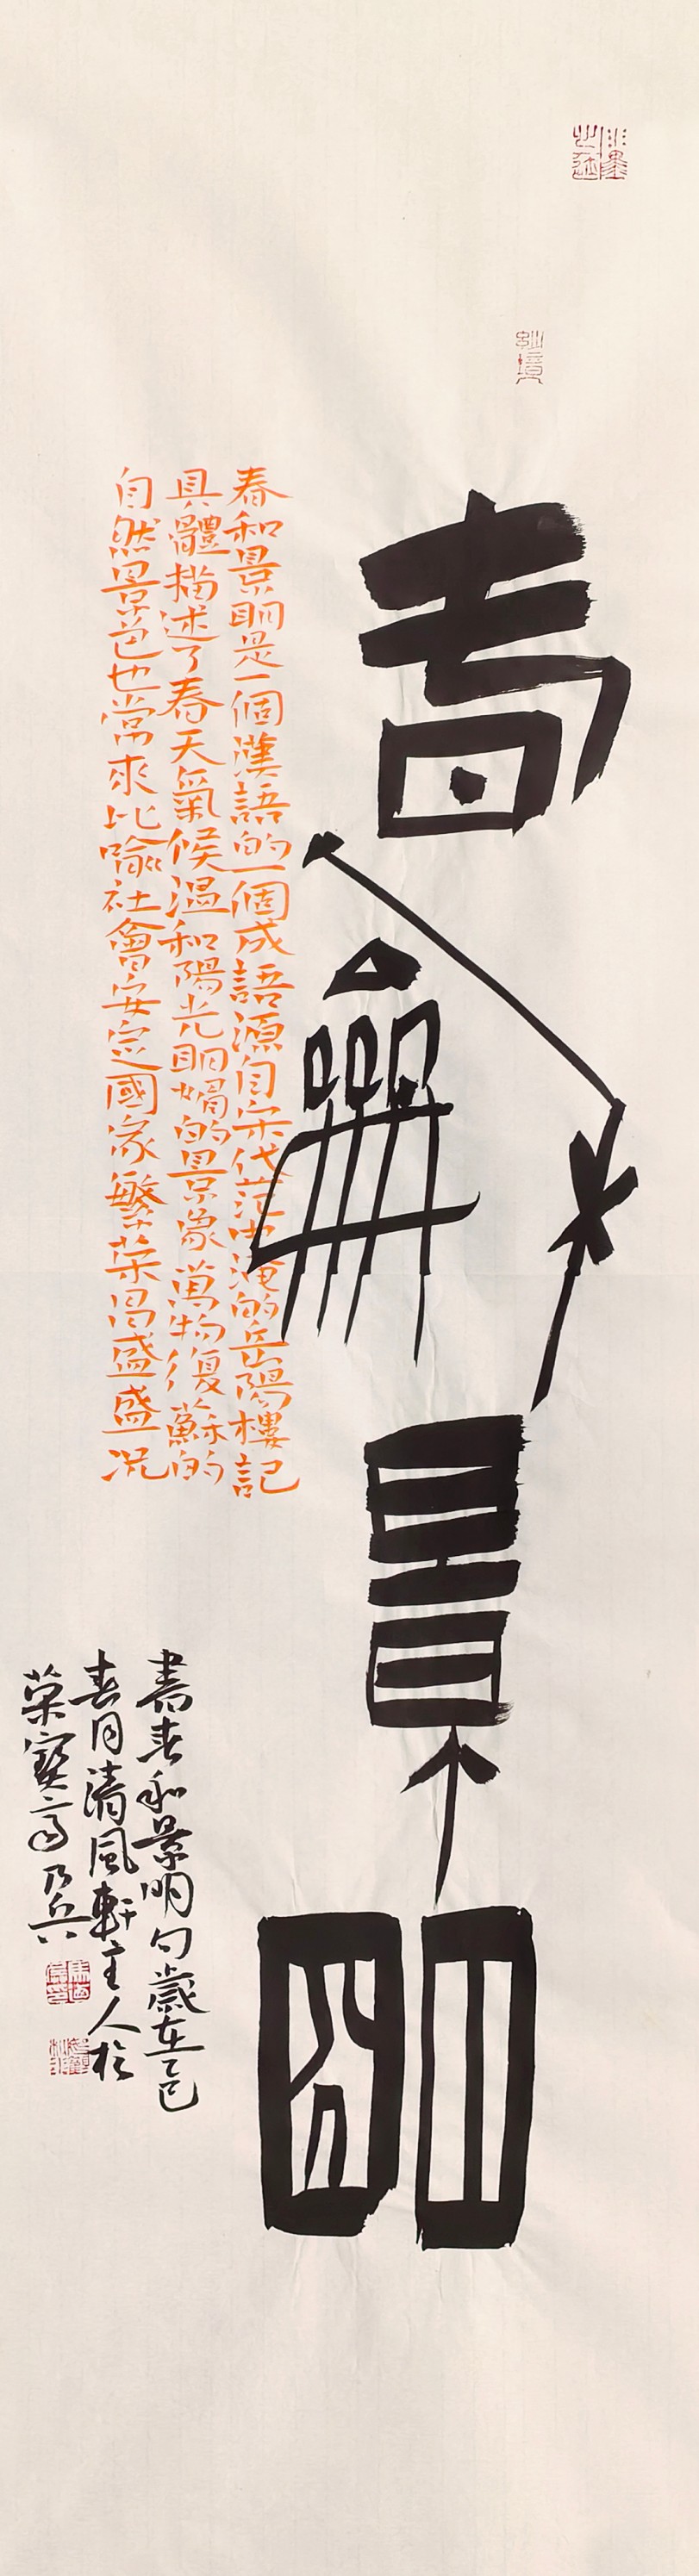 春龢景朙
春和景朙是一個漢語的一個成語源自宋代范仲淹的岳陽樓記
具體描述了春天氣候溫和陽光朙媚的景象萬物復蘇的
自然景色也常來比喻社會安定國家繁荣昌盛盛况
書春和景明句歲在乙巳
春月清風軒主人於
榮寶齋乃兵